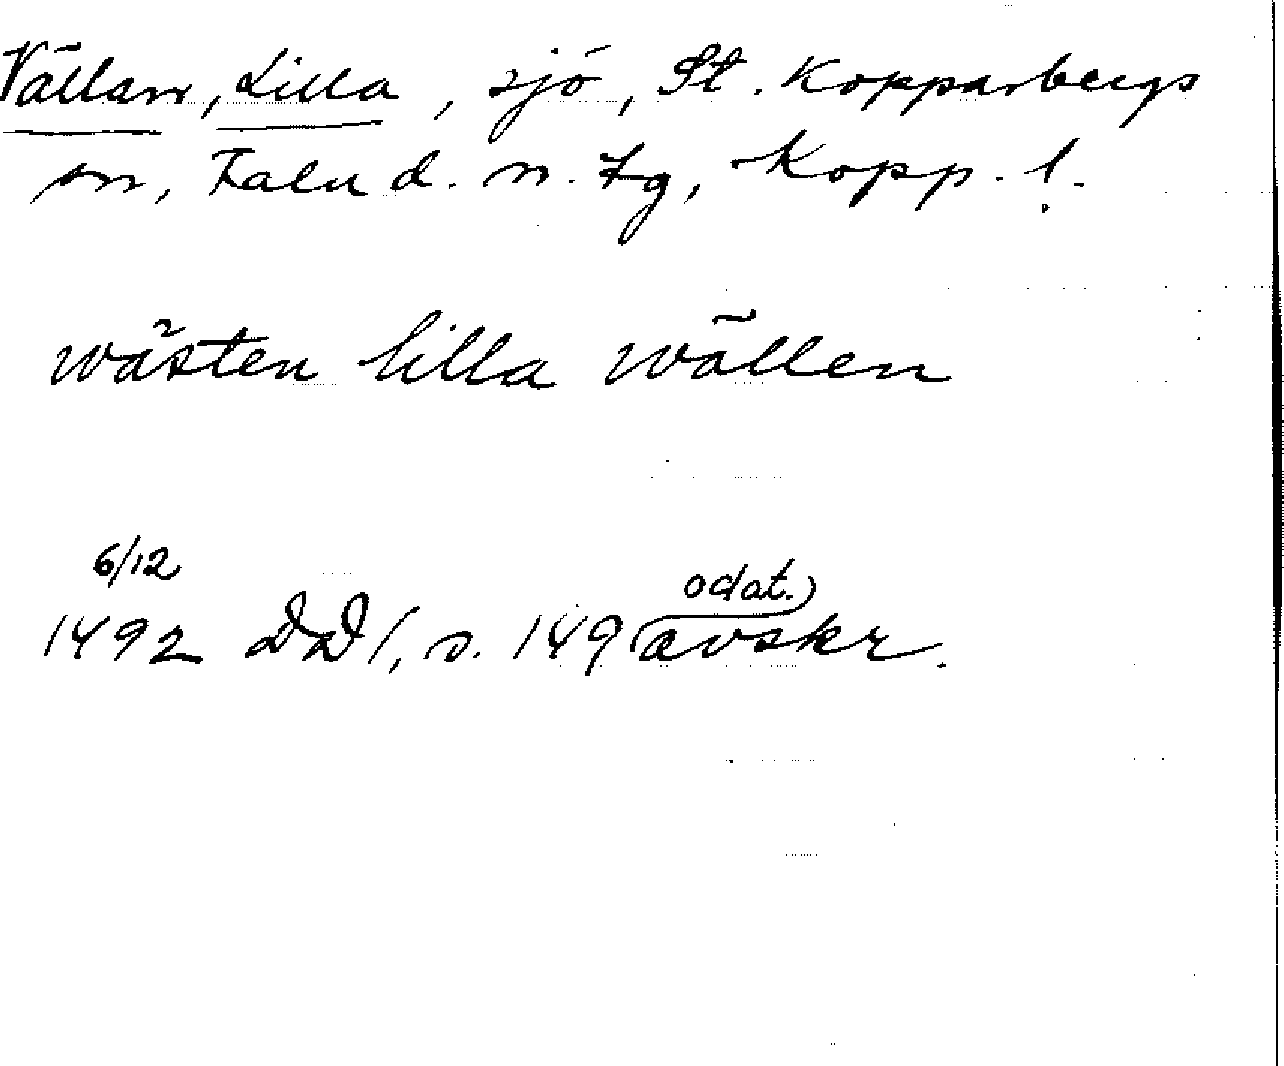 Vällan, Lilla, sjö, St. Kopparbergs
sn, Falu d. n. tg, Kopp. l.
wästen lilla wällen
6/12
1492 DD 1, s. 149 (odat.) avskr.